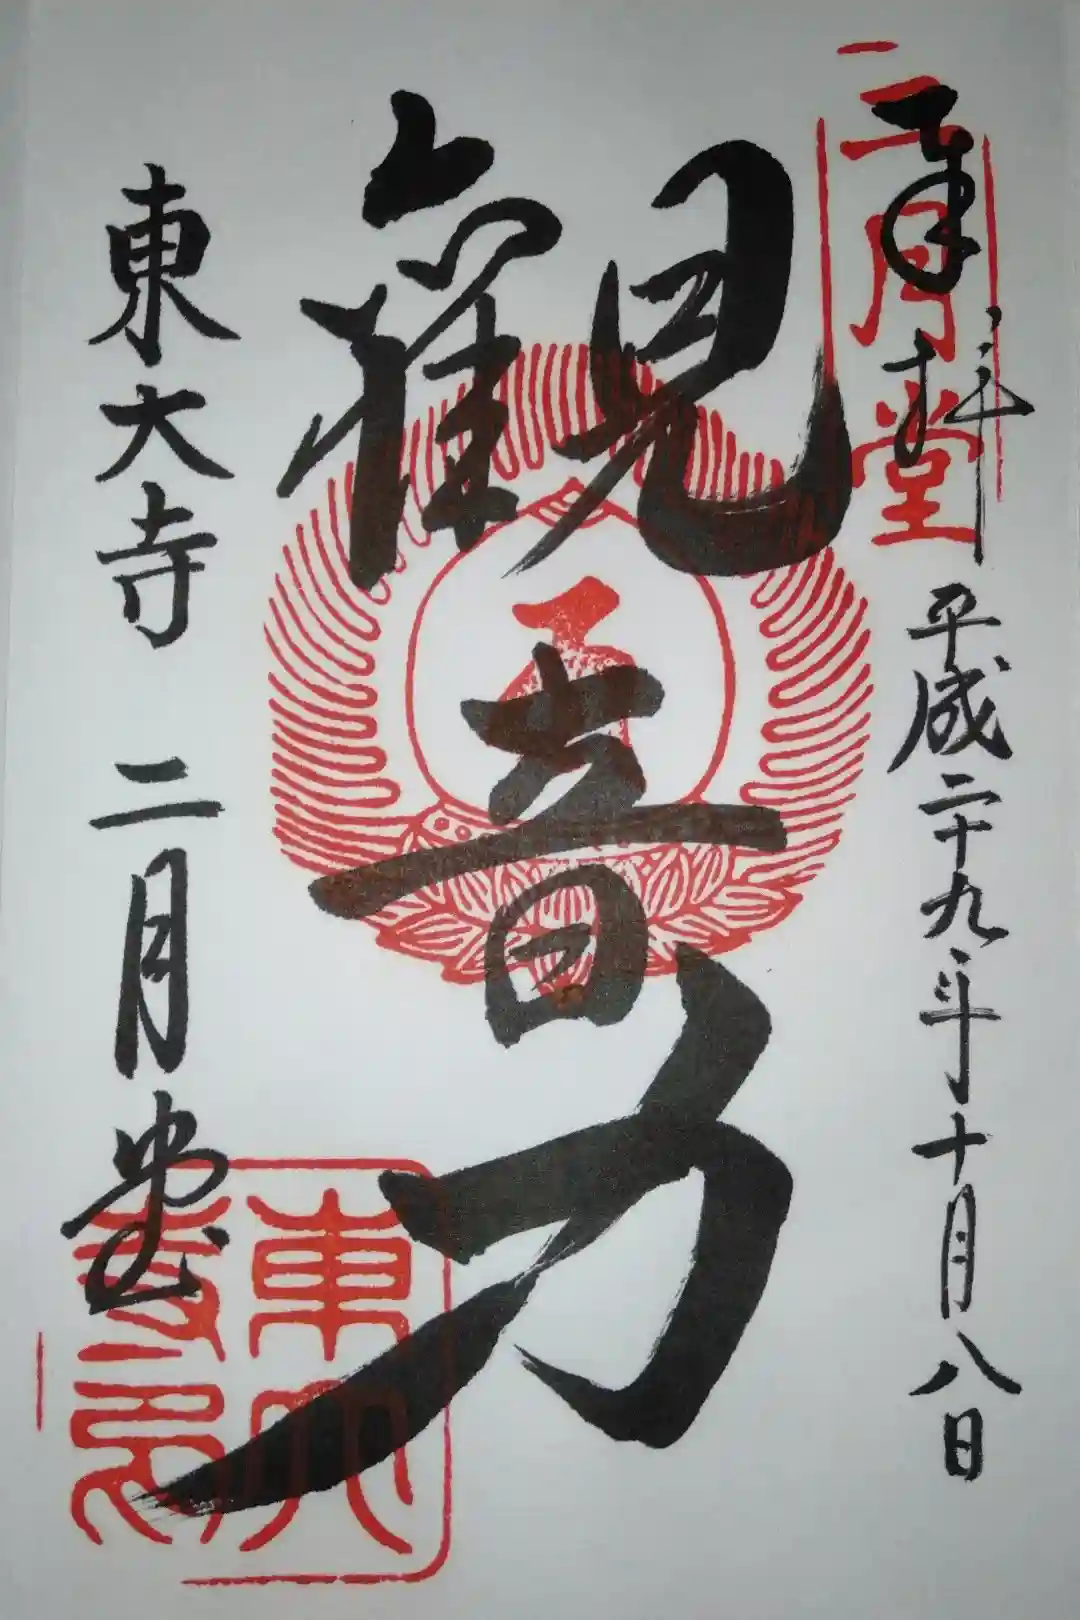 奉拝
平成二十九年十月八日
二月堂
観音力
東大寺 二月堂
東大寺印